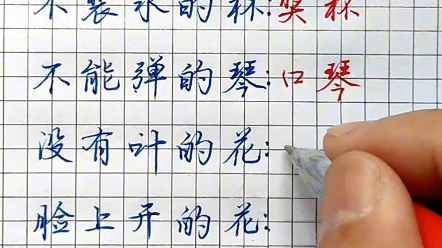 不装水的杯:奖杯
不能弹的琴:口琴
没有叶的花:
脸上开的花: